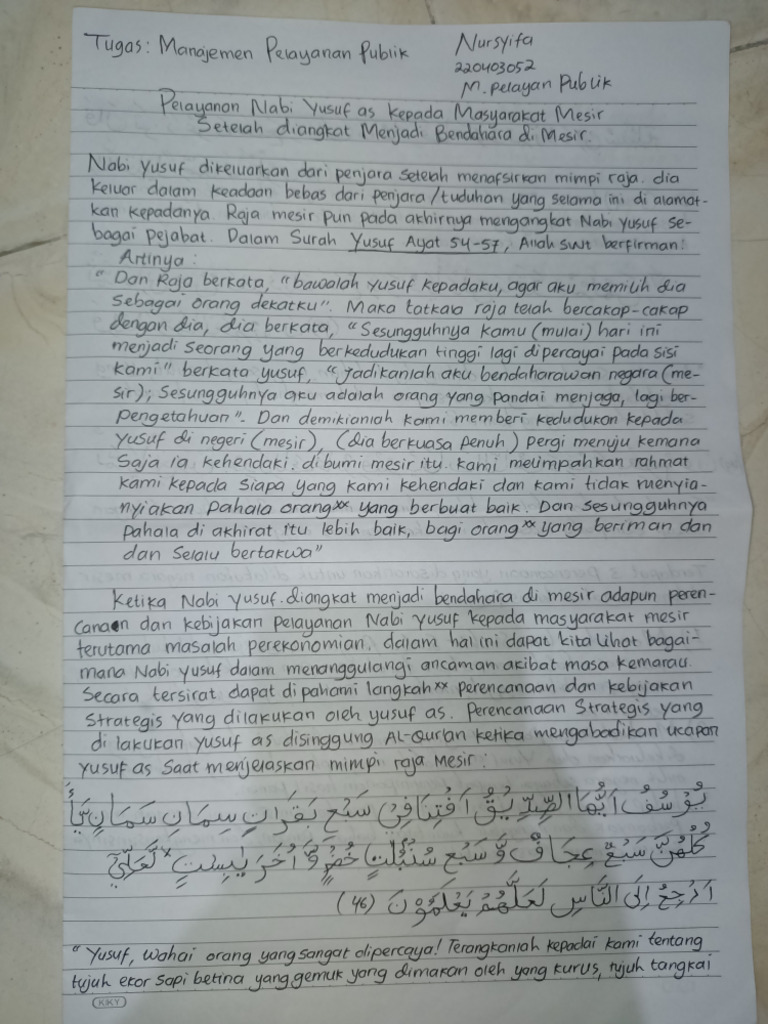 Tugas: Manajemen Pelayanan Publik
Nursyifa
220403052
M. Pelayan Publik
Pelayanan Nabi Yusuf as kepada Masyarakat Mesir
Setelah diangkat Menjadi Bendahara di Mesir.
Nabi Yusuf dikeluarkan dari penjara setelah menafsirkan mimpi raja. dia
keluar dalam keadaan bebas dari penjara/tuduhan yang selama ini di alamat-
kan kepadanya. Raja mesir pun pada akhirnya mengangkat Nabi Yusuf se-
bagai pejabat. Dalam Surah Yusuf Ayat 54-57, Allah swt berfirman:
Artinya :
" Dan Raja berkata, "bawalah yusuf kepadaku, agar aku memilih dia
sebagai orang dekatku". Maka tatkala raja telah bercakap-cakap
dengan dia, dia berkata, "Sesungguhnya kamu (mulai) hari ini
menjadi seorang yang berkedudukan tinggi lagi dipercayai pada sisi
kami" berkata yusuf, "Jadikanlah aku bendaharawan negara (me-
sir); Sesungguhnya aku adalah orang yang pandai menjaga, lagi ber-
pengetahuan". Dan demikianlah kami memberi kedudukan kepada
yusuf di negeri (mesir), (dia berkuasa penuh) pergi menuju kemana
saja ia kehendaki. dibumi mesir itu. kami melimpahkan rahmat
kami kepada siapa yang kami kehendaki dan kami tidak menyia-
nyiakan pahala orang** yang berbuat baik. Dan sesungguhnya
pahala di akhirat itu lebih baik, bagi orang** yang beriman dan
dan selalu bertakwa"
Ketika Nabi yusuf diangkat menjadi bendahara di mesir adapun peren-
canaan dan kebijakan pelayanan Nabi yusuf kepada masyarakat mesir
terutama masalah perekonomian. dalam hal ini dapat kita lihat bagai-
mana Nabi yusuf dalam menanggulangi ancaman akibat masa kemarau.
Secara tersirat dapat di pahami langkah** perencanaan dan kebijakan
Strategis yang dilakukan oleh yusuf as. Perencanaan Strategis yang
di lakukan yusuf as disinggung AL-Qur'an ketika mengabadikan ucapan
yusuf as saat menjelaskan mimpi raja Mesir :
يُوْسُفُ اَيُّهَا الصِّدِّيْقُ اَفْتِنَا فِيْ سَبْعِ بَقَرَاتٍ سِمَانٍ سَمَانٍ يَّأْ
كُلُهُنَّ سَبْعٌ عِجَافٌ وَّسَبْعِ سُنْۢبُلٰتٍ خُضْرٍ وَّاُخَرَ يٰبِسٰتٍ لَّعَلِّيْٓ
اَرْجِعُ اِلَى النَّاسِ لَعَلَّهُمْ يَعْلَمُوْنَ (46)
"Yusuf, wahai orang yang sangat dipercaya! Terangkanlah kepadai kami tentang
tujuh ekor sapi betina yang gemuk yang dimakan oleh yang kurus, tujuh tangkai
KIKY